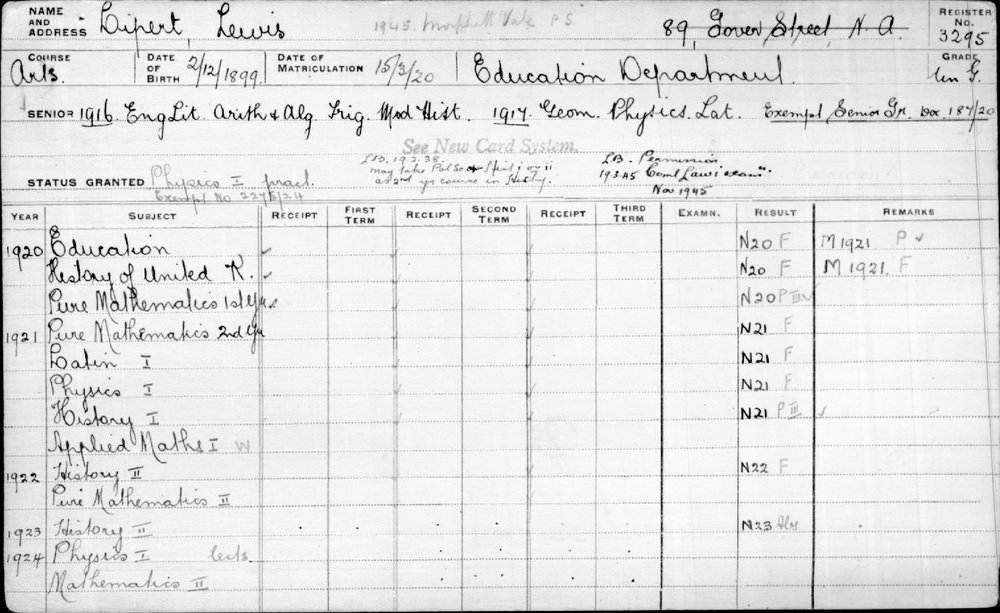 NAME AND ADDRESS Lipert, Lewis 1945 Morphett Vale P S 89, Gover Street, N. A. REGISTER No. 3295
COURSE Arts. DATE OF BIRTH 2/12/1899. DATE OF MATRICULATION 15/3/20 Education Department. GRADE
SENIOR 1916 Eng Lit. Arith & Alg. Trig. Mod Hist. 1917. Geom. Physics. Lat. Exempt, Senior Gr. Doc 187/20
See New Card System.
LB. 19.2.38. LB. Permission
may take Pol Sc 19.3.45 Coml Law i exam"
as 2nd yr course in History. Nov 1945
STATUS GRANTED Physics I pract.
Exempt No 227B/24
YEAR SUBJECT RECEIPT FIRST TERM RECEIPT SECOND TERM RECEIPT THIRD TERM EXAMN. RESULT REMARKS
1920 Education N20 F M 1921 P
History of United K. N20 F M 1921. F
Pure Mathematics 1st Yr N20 P III
1921 Pure Mathematics 2nd Yr N21 F
Latin I N21 F
Physics I N21 F
History I N21 P III
Applied Maths I W
1922 History II N22 F
Pure Mathematics II
1923 History II N23 Abs
1924 Physics I lects.
Mathematics II